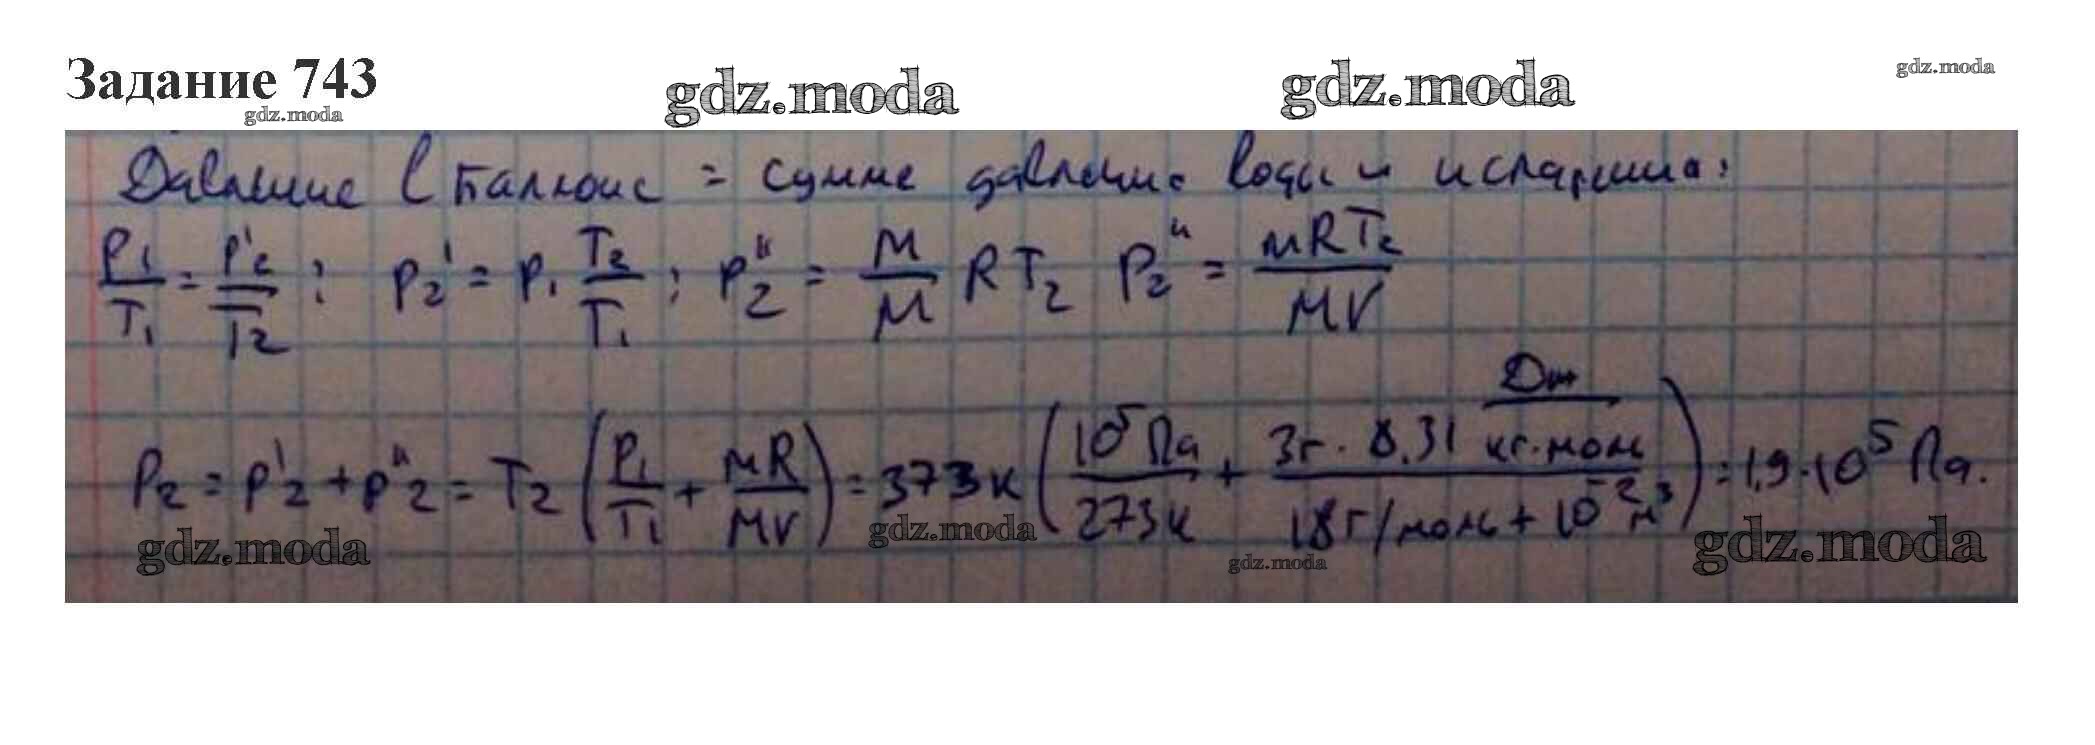 Задание 743
gdz.moda
gdz.moda
gdz.moda
gdz.moda
Давление в баллоне = сумме давлений воды и испарения:
P₁/T₁ = P₂'/T₂; P₂' = P₁ T₂/T₁; P₂'' = м/М RT₂ P₂'' = мRT₂/МV
P₂ = P₂' + P₂'' = T₂ (P₁/T₁ + мR/МV) = 373к (10⁵Па/273к + 3г · 8,31 Дж/кг·моль / 18г/моль + 10⁻² м³) = 1,9 · 10⁵ Па.
gdz.moda
gdz.moda
gdz.moda
gdz.moda